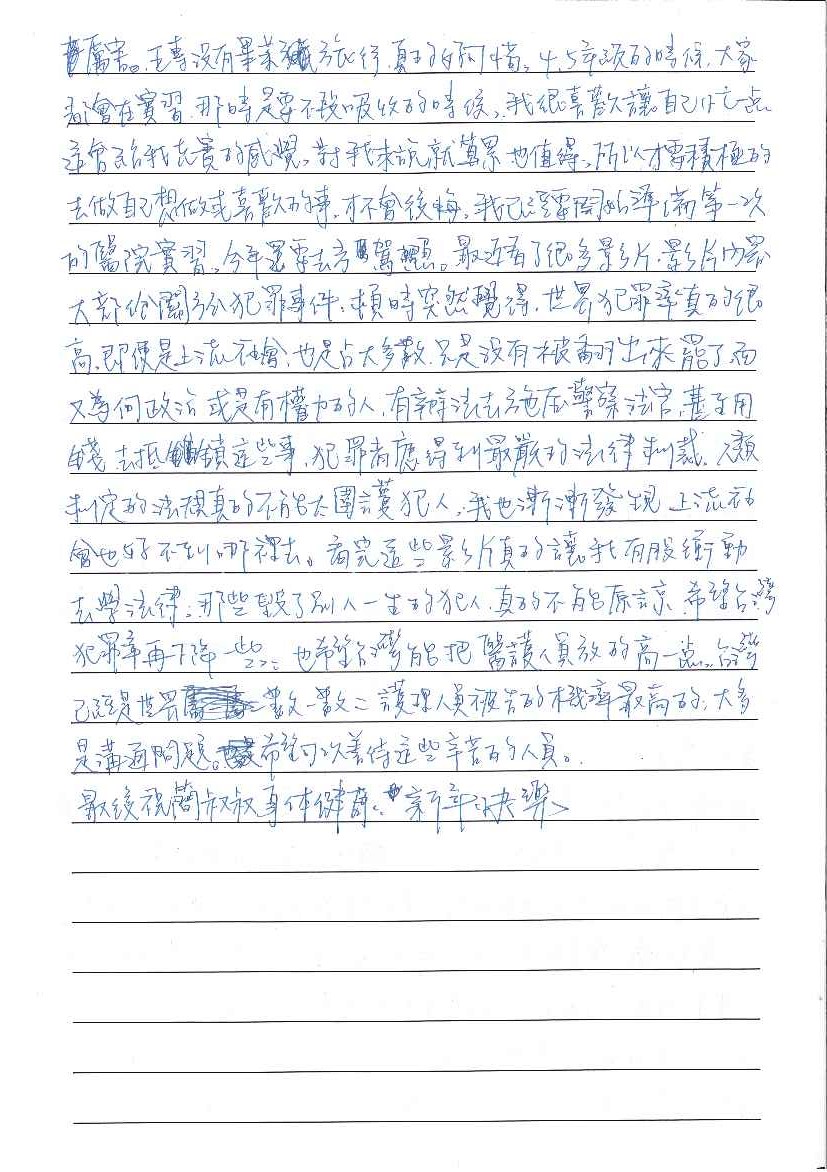 厲害。五專沒有畢業旅行,真的好可惜。4.5年級的時候,大家
都會在實習,那時是要不段吸收的時候,我很喜歡讓自己忙一点
這會給我充實的感覺,對我來說就算累也值得,所以才要積極的
去做自己想做或喜歡的事,才不會後悔,我已經要開始準備第一次
的醫院實習,今年還要去考駕照。最近看了很多影片,影片內容
大部份關於犯罪事件,頓時突然覺得,世界犯罪率真的很
高,即便是上流社會,也是占大多數,只是沒有被翻出來罷了,而
又為何政治或是有權力的人,有辦法去施压警察法官,甚至用
錢去抵鎮這些事,犯罪者應得到最嚴的法律制裁,人類
制定的法規真的不能太圍護犯人,我也漸漸發現上流社
會也好不到哪裡去。看完這些影片真的讓我有股衝動
去學法律,那些毀了別人一生的犯人,真的不能原諒,希望台灣
犯罪率再下降一些,也希望台灣能把醫護人員放的高一点。台灣
已經是世界數一數二護理人員被告的機率最高的,大多
是溝通問題。希望可以善待這些辛苦的人員。
最後祝簡叔叔身体健康,新年快樂